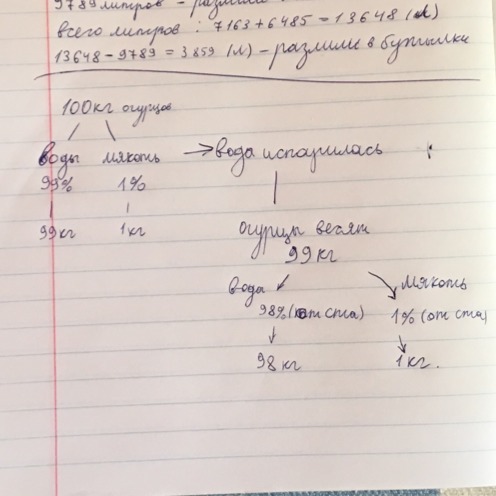 9789 литров -
всего литров: 7163 + 6485 = 13648 (л)
13648 - 9789 = 3859 (л) - разлили в бутылки
100кг огурцов
воды мякоть → вода испарилась
99% 1%
99кг 1кг
огурцы весят
99 кг
вода мякоть
98% (от ста) 1% (от ста)
98 кг 1кг.